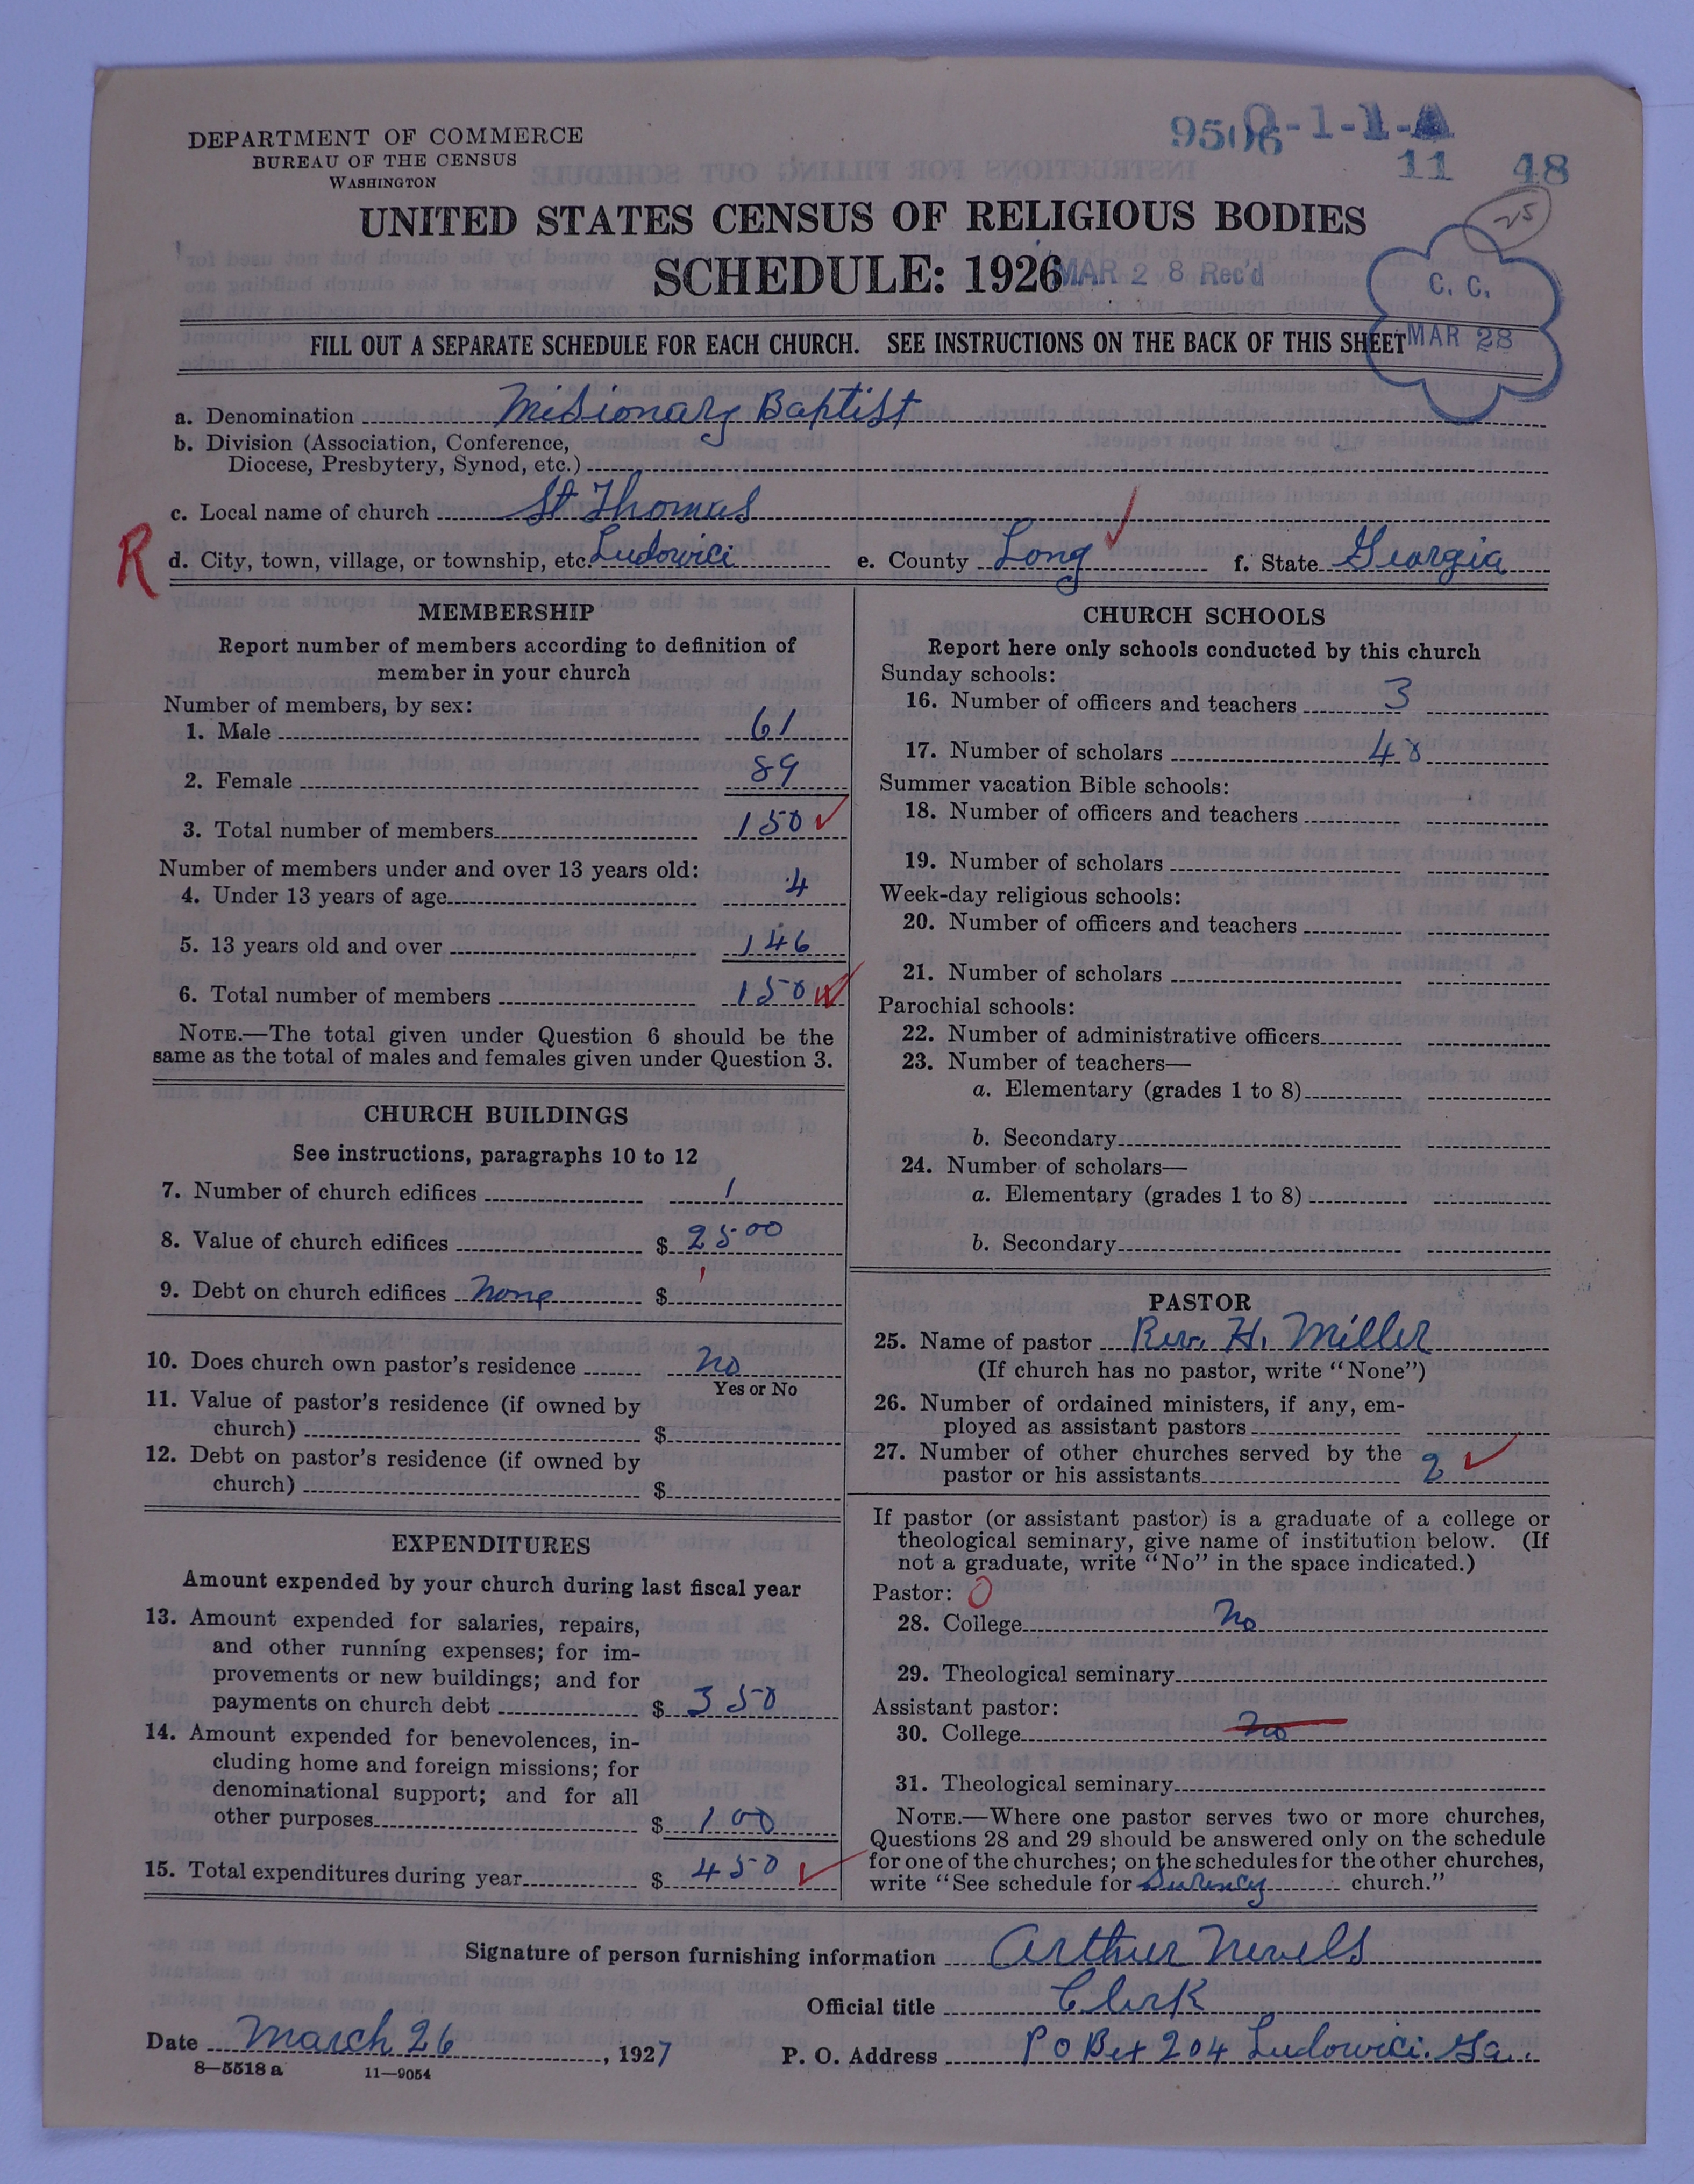 DEPARTMENT OF COMMERCE
BUREAU OF THE CENSUS
WASHINGTON
9506 0-1-1-A
11 48
25
UNITED STATES CENSUS OF RELIGIOUS BODIES
SCHEDULE: 1926
MAR 28 Rec'd
C. C.
MAR 28
FILL OUT A SEPARATE SCHEDULE FOR EACH CHURCH. SEE INSTRUCTIONS ON THE BACK OF THIS SHEET
a. Denomination Misionary Baptist
b. Division (Association, Conference,
Diocese, Presbytery, Synod, etc.)
c. Local name of church St Thomas
R
d. City, town, village, or township, etc. Ludowici e. County Long f. State Georgia
MEMBERSHIP
Report number of members according to definition of
member in your church
Number of members, by sex:
1. Male 61
2. Female 89
3. Total number of members 150
Number of members under and over 13 years old:
4. Under 13 years of age 4
5. 13 years old and over 146
6. Total number of members 150
NOTE.—The total given under Question 6 should be the
same as the total of males and females given under Question 3.
CHURCH BUILDINGS
See instructions, paragraphs 10 to 12
7. Number of church edifices 1
8. Value of church edifices $ 2500
9. Debt on church edifices none $
10. Does church own pastor's residence no
Yes or No
11. Value of pastor's residence (if owned by
church) $
12. Debt on pastor's residence (if owned by
church) $
EXPENDITURES
Amount expended by your church during last fiscal year
13. Amount expended for salaries, repairs,
and other running expenses; for im-
provements or new buildings; and for
payments on church debt $ 350
14. Amount expended for benevolences, in-
cluding home and foreign missions; for
denominational support; and for all
other purposes $ 100
15. Total expenditures during year $ 450
CHURCH SCHOOLS
Report here only schools conducted by this church
Sunday schools:
16. Number of officers and teachers 3
17. Number of scholars 48
Summer vacation Bible schools:
18. Number of officers and teachers
19. Number of scholars
Week-day religious schools:
20. Number of officers and teachers
21. Number of scholars
Parochial schools:
22. Number of administrative officers
23. Number of teachers—
a. Elementary (grades 1 to 8)
b. Secondary
24. Number of scholars—
a. Elementary (grades 1 to 8)
b. Secondary
PASTOR
25. Name of pastor Rev. H. Miller
(If church has no pastor, write "None")
26. Number of ordained ministers, if any, em-
ployed as assistant pastors
27. Number of other churches served by the
pastor or his assistants 2
If pastor (or assistant pastor) is a graduate of a college or
theological seminary, give name of institution below. (If
not a graduate, write "No" in the space indicated.)
Pastor: 0
28. College No
29. Theological seminary
Assistant pastor:
30. College No
31. Theological seminary
NOTE.—Where one pastor serves two or more churches,
Questions 28 and 29 should be answered only on the schedule
for one of the churches; on the schedules for the other churches,
write "See schedule for Surency church."
Signature of person furnishing information Arthur Nevels
Official title Clerk
Date March 26, 1927 P. O. Address P O Box 204 Ludowici. Ga.
8—5518 a 11—9054